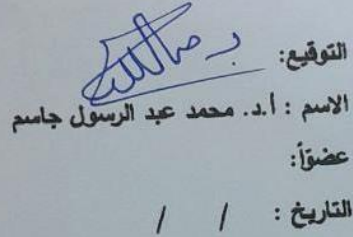 التوقيع:
الاسم : أ.د. محمد عبد الرسول جاسم
عضوًا:
التاريخ : / /